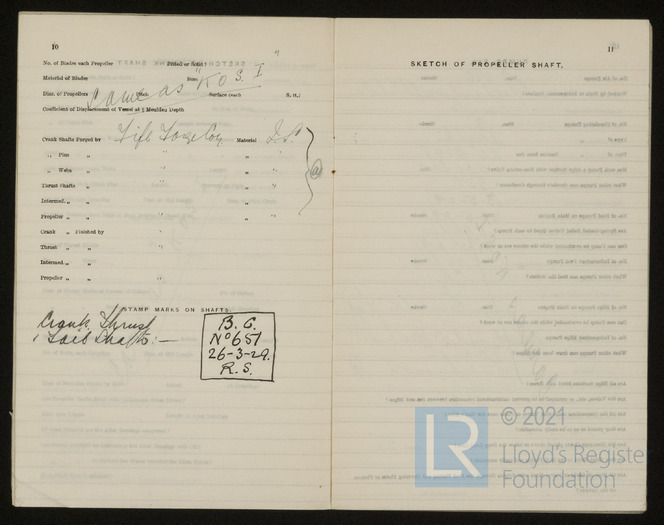 10
No. of Blades each Propeller Fitted or Solid?
Material of Blades Boss
Diam. of Propellers Pitch Surface (each S. ft.)
Same as "KOS I"
Coefficient of Displacement of Vessel at ¾ Moulded Depth
Crank Shafts Forged by Fife Forge Coy Material I.S.
„ Pins „ " „ "
„ Webs „ " „ "
Thrust Shafts „ " „ "
Intermed. „ „ " „ "
Propeller „ „ " „ "
Crank „ Finished by "
Thrust „ „ "
Intermed. „ „ "
Propeller „ „ "
STAMP MARKS ON SHAFTS.
Crank Thrust
& Tail Shafts :—
B. C.
No 651
26-3-29.
R. S.
11
SKETCH OF PROPELLER SHAFT.
© 2021
LR
Lloyd's Register
Foundation